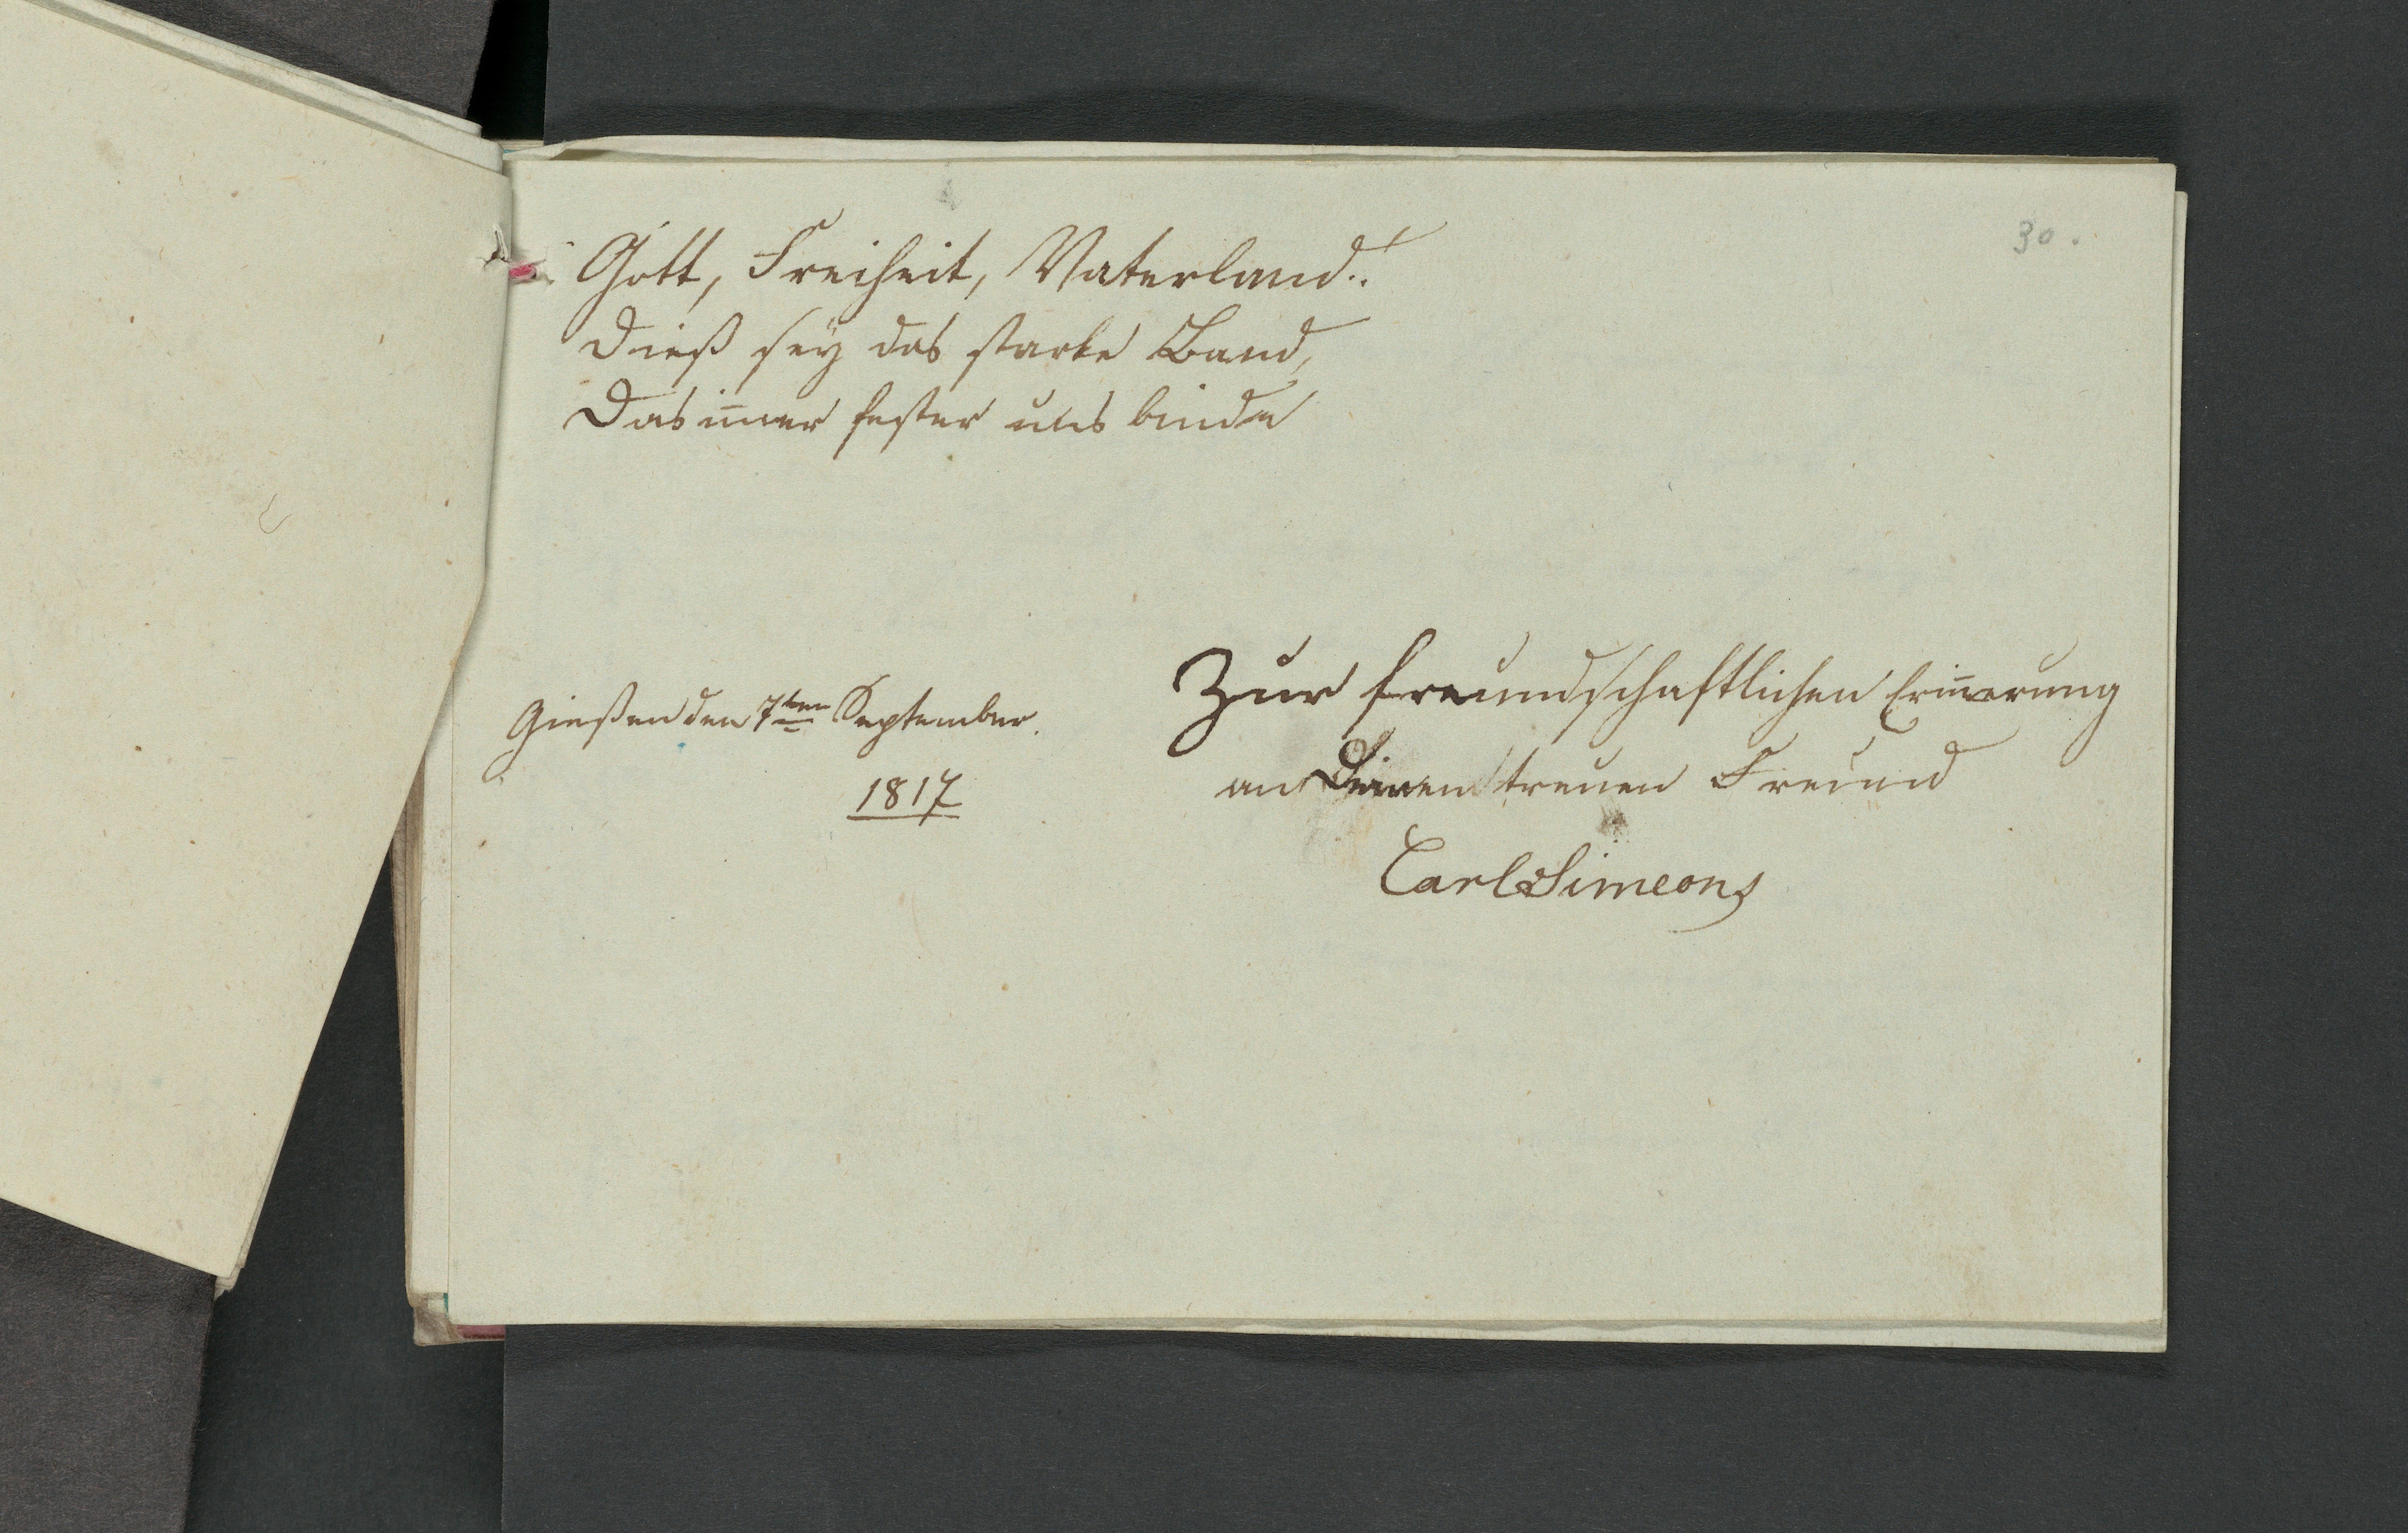 30.
Gott, Freiheit, Vaterland!
Dieß sey das starke Band,
Das im̅er fester uns binde
Gießen den 7ten September.
1817
Zur freundschaftlichen Erin̅erung
an Deinen treuen Freund
Carl Simeons